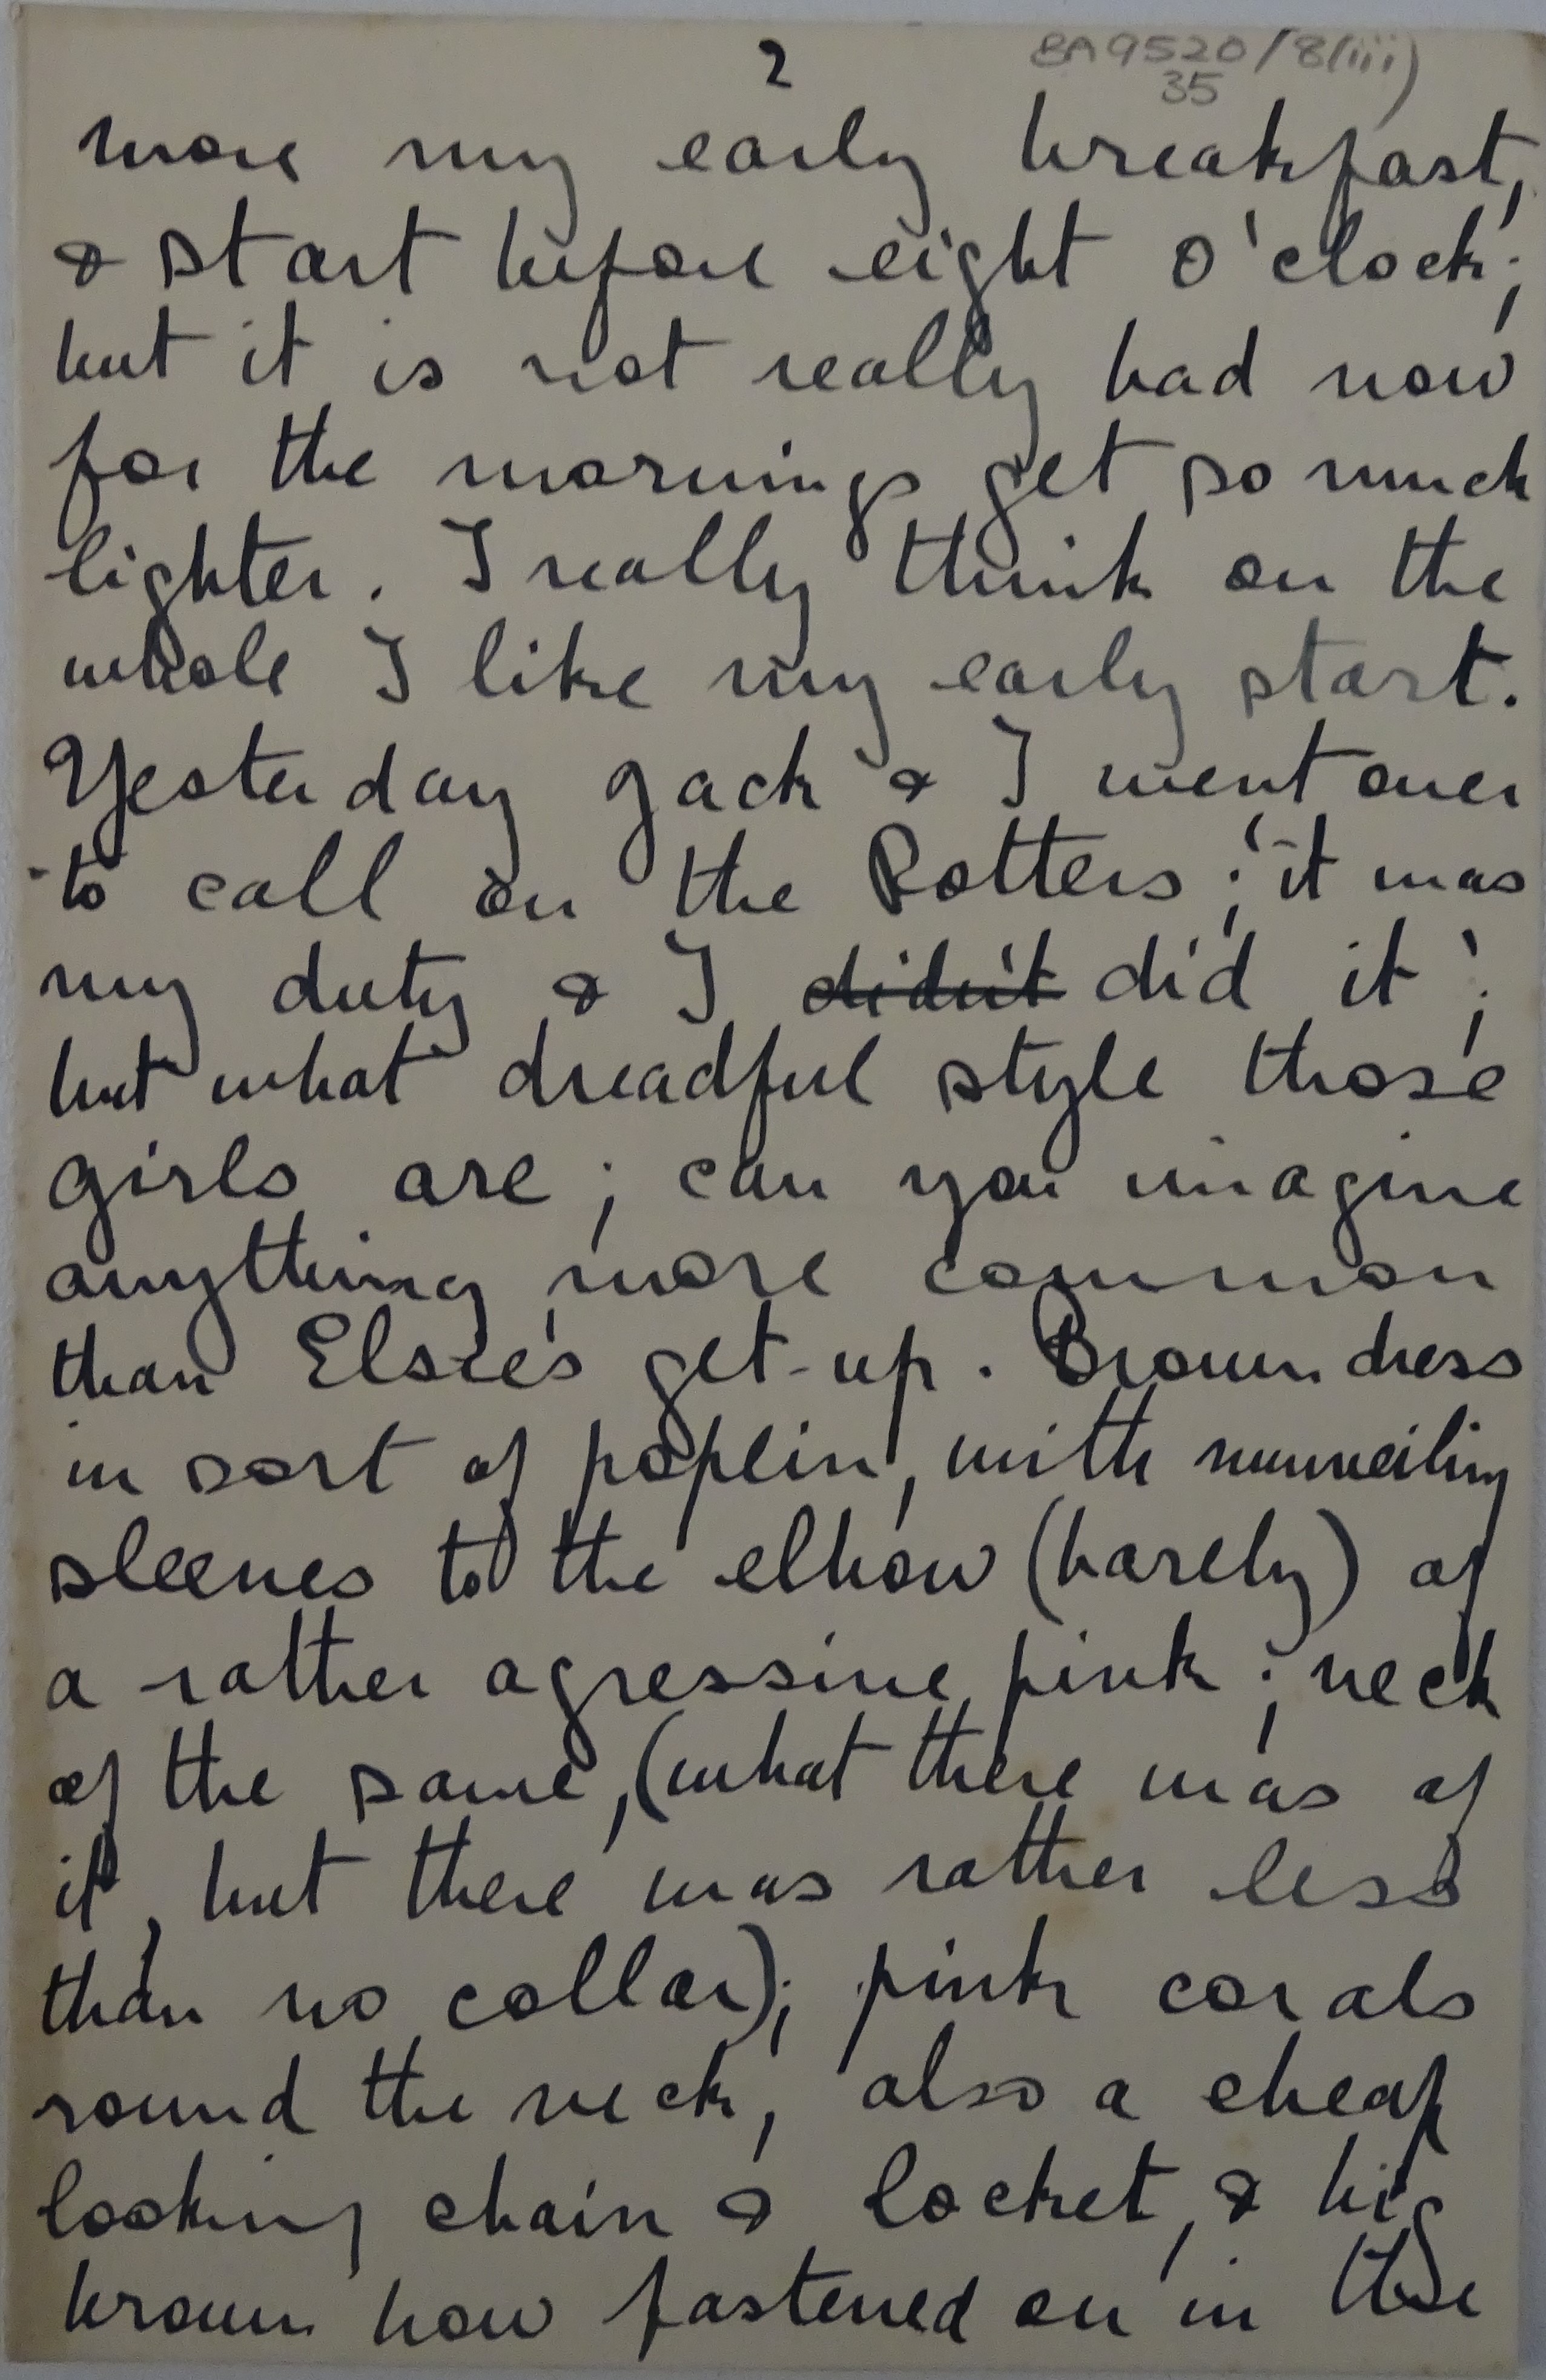 2
BA9520/8(iii)
35
more my early breakfast,
& start before eight o'clock;
but it is not really bad now
for the mornings get so much
lighter. I really think on the
whole I like my early start.
Yesterday Jack & I went over
to call on the Potters; it was
my duty & I didn't did it;
but what dreadful style those
girls are; can you imagine
anything more common
than Elsie's get-up. Brown dress
in sort of poplin, with nunveiling
sleeves to the elbow (barely) of
a rather agressive pink; neck
of the same, (what there was of
it, but there was rather less
than no collar); pink corals
round the neck, also a cheap
looking chain & locket, & big
brown bow fastened on in the